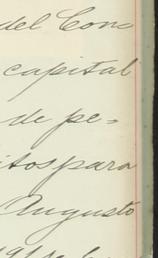 del Conc
capital
de pe=
itos para
Augusto